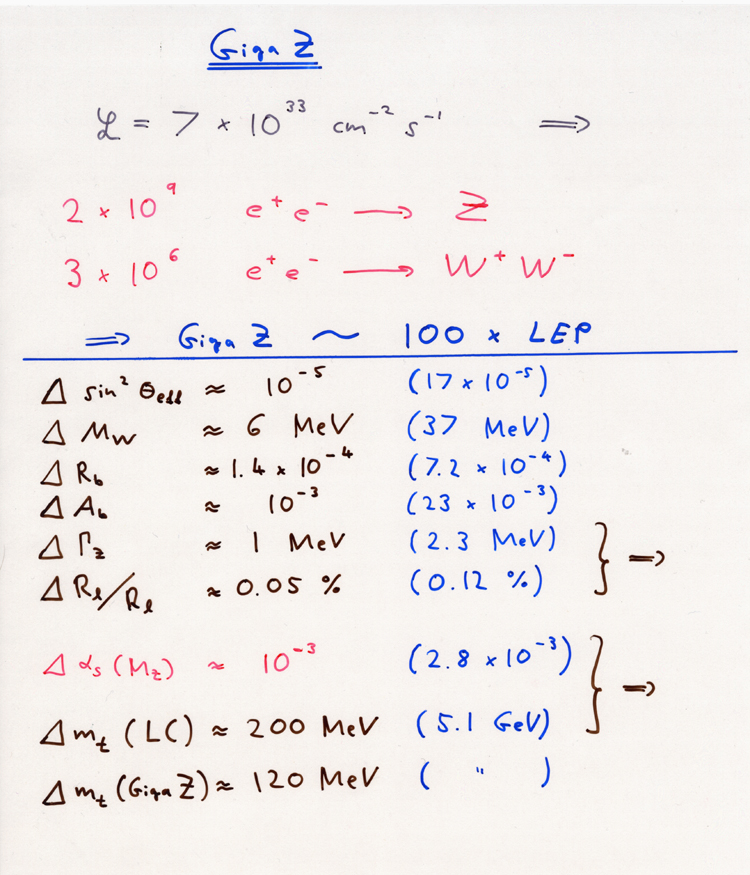 Giga Z
ℒ = 7 × 10³³ cm⁻² s⁻¹ ⟹
2 × 10⁹ e⁺e⁻ ⟶ Z
3 × 10⁶ e⁺e⁻ ⟶ W⁺W⁻
⟹ Giga Z ~ 100 × LEP
Δ sin² θeff ≈ 10⁻⁵ (17 × 10⁻⁵)
Δ MW ≈ 6 MeV (37 MeV)
Δ Rb ≈ 1.4 × 10⁻⁴ (7.2 × 10⁻⁴)
Δ Ab ≈ 10⁻³ (23 × 10⁻³)
Δ ΓZ ≈ 1 MeV (2.3 MeV) } ⟹
Δ Rℓ/Rℓ ≈ 0.05 % (0.12 %)
Δ αs (MZ) ≈ 10⁻³ (2.8 × 10⁻³) } ⟹
Δ mt (LC) ≈ 200 MeV (5.1 GeV)
Δ mt (Giga Z) ≈ 120 MeV ( " )